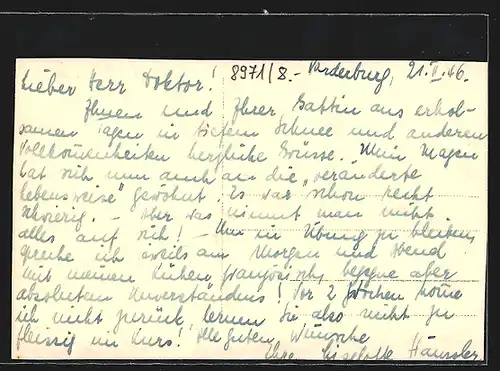 8971/8.- Vorderburg, 21.II.46.
Lieber Herr Doktor!
Ihnen und Ihrer Gattin aus erhol-
samen Tagen in tiefem Schnee und anderen
Vollkommenheiten herzliche Grüsse. Mein Magen
hat sich nun auch an die „veränderte
Lebensweise" gewöhnt. Es war schon recht
schwierig. – Aber was nimmt man nicht
alles auf sich! – Um in Übung zu bleiben,
spreche ich jeweils am Morgen und Abend
mit meinen Kühen französisch, begegne aber
absolutem Unverständnis! Vor 2 Wochen komme
ich nicht zurück, lernen Sie also nicht zu
fleissig im Kurs! Alle guten Wünsche
Ihre Liselotte Häussler